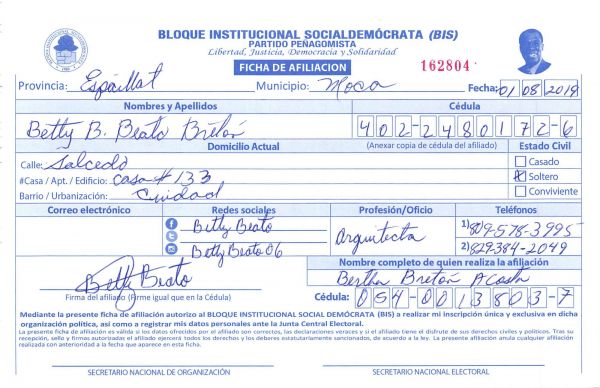 BLOQUE INSTITUCIONAL SOCIALDEMÓCRATA (BIS)
PARTIDO PEÑAGOMISTA
Libertad, Justicia, Democracia y Solidaridad
FICHA DE AFILIACION
162804
Provincia: Espaillat Municipio: Moca Fecha: 01 08 2019
Nombres y Apellidos Cédula
Betty B. Beato Bretón 402-2480172-6
Domicilio Actual (Anexar copia de cédula del afiliado) Estado Civil
Calle: Salcedo Casado
#Casa / Apt. / Edificio: Casa # 133 Soltero
Barrio / Urbanización: Cuidad Conviviente
Correo electrónico Redes sociales Profesión/Oficio Teléfonos
Betty Beato Arquitecta 1) 809-578-3995
Betty Beato 06 2) 829-384-2049
Nombre completo de quien realiza la afiliación
Betty Beato Bertha Bretón Acosta
Firma del afiliado (Firme igual que en la Cédula) Cédula: 054-0013803-7
Mediante la presente ficha de afiliación autorizo al BLOQUE INSTITUCIONAL SOCIAL DEMÓCRATA (BIS) a realizar mi inscripción única y exclusiva en dicha
organización política, así como a registrar mis datos personales ante la Junta Central Electoral.
La presente ficha de afiliación es válida si los datos ofrecidos por el afiliado son correctos, las declaraciones veraces y si el afiliado tiene el disfrute de sus derechos civiles y políticos. Tras su
recepción, sello y firmas autorizadas el afiliado ejercerá todos los derechos y los deberes estatutariamente sancionados, de acuerdo a la ley. La presente afiliación anula cualquier afiliación
realizada con anterioridad a la fecha que aparece en esta ficha.
SECRETARIO NACIONAL DE ORGANIZACIÓN SECRETARIO NACIONAL ELECTORAL